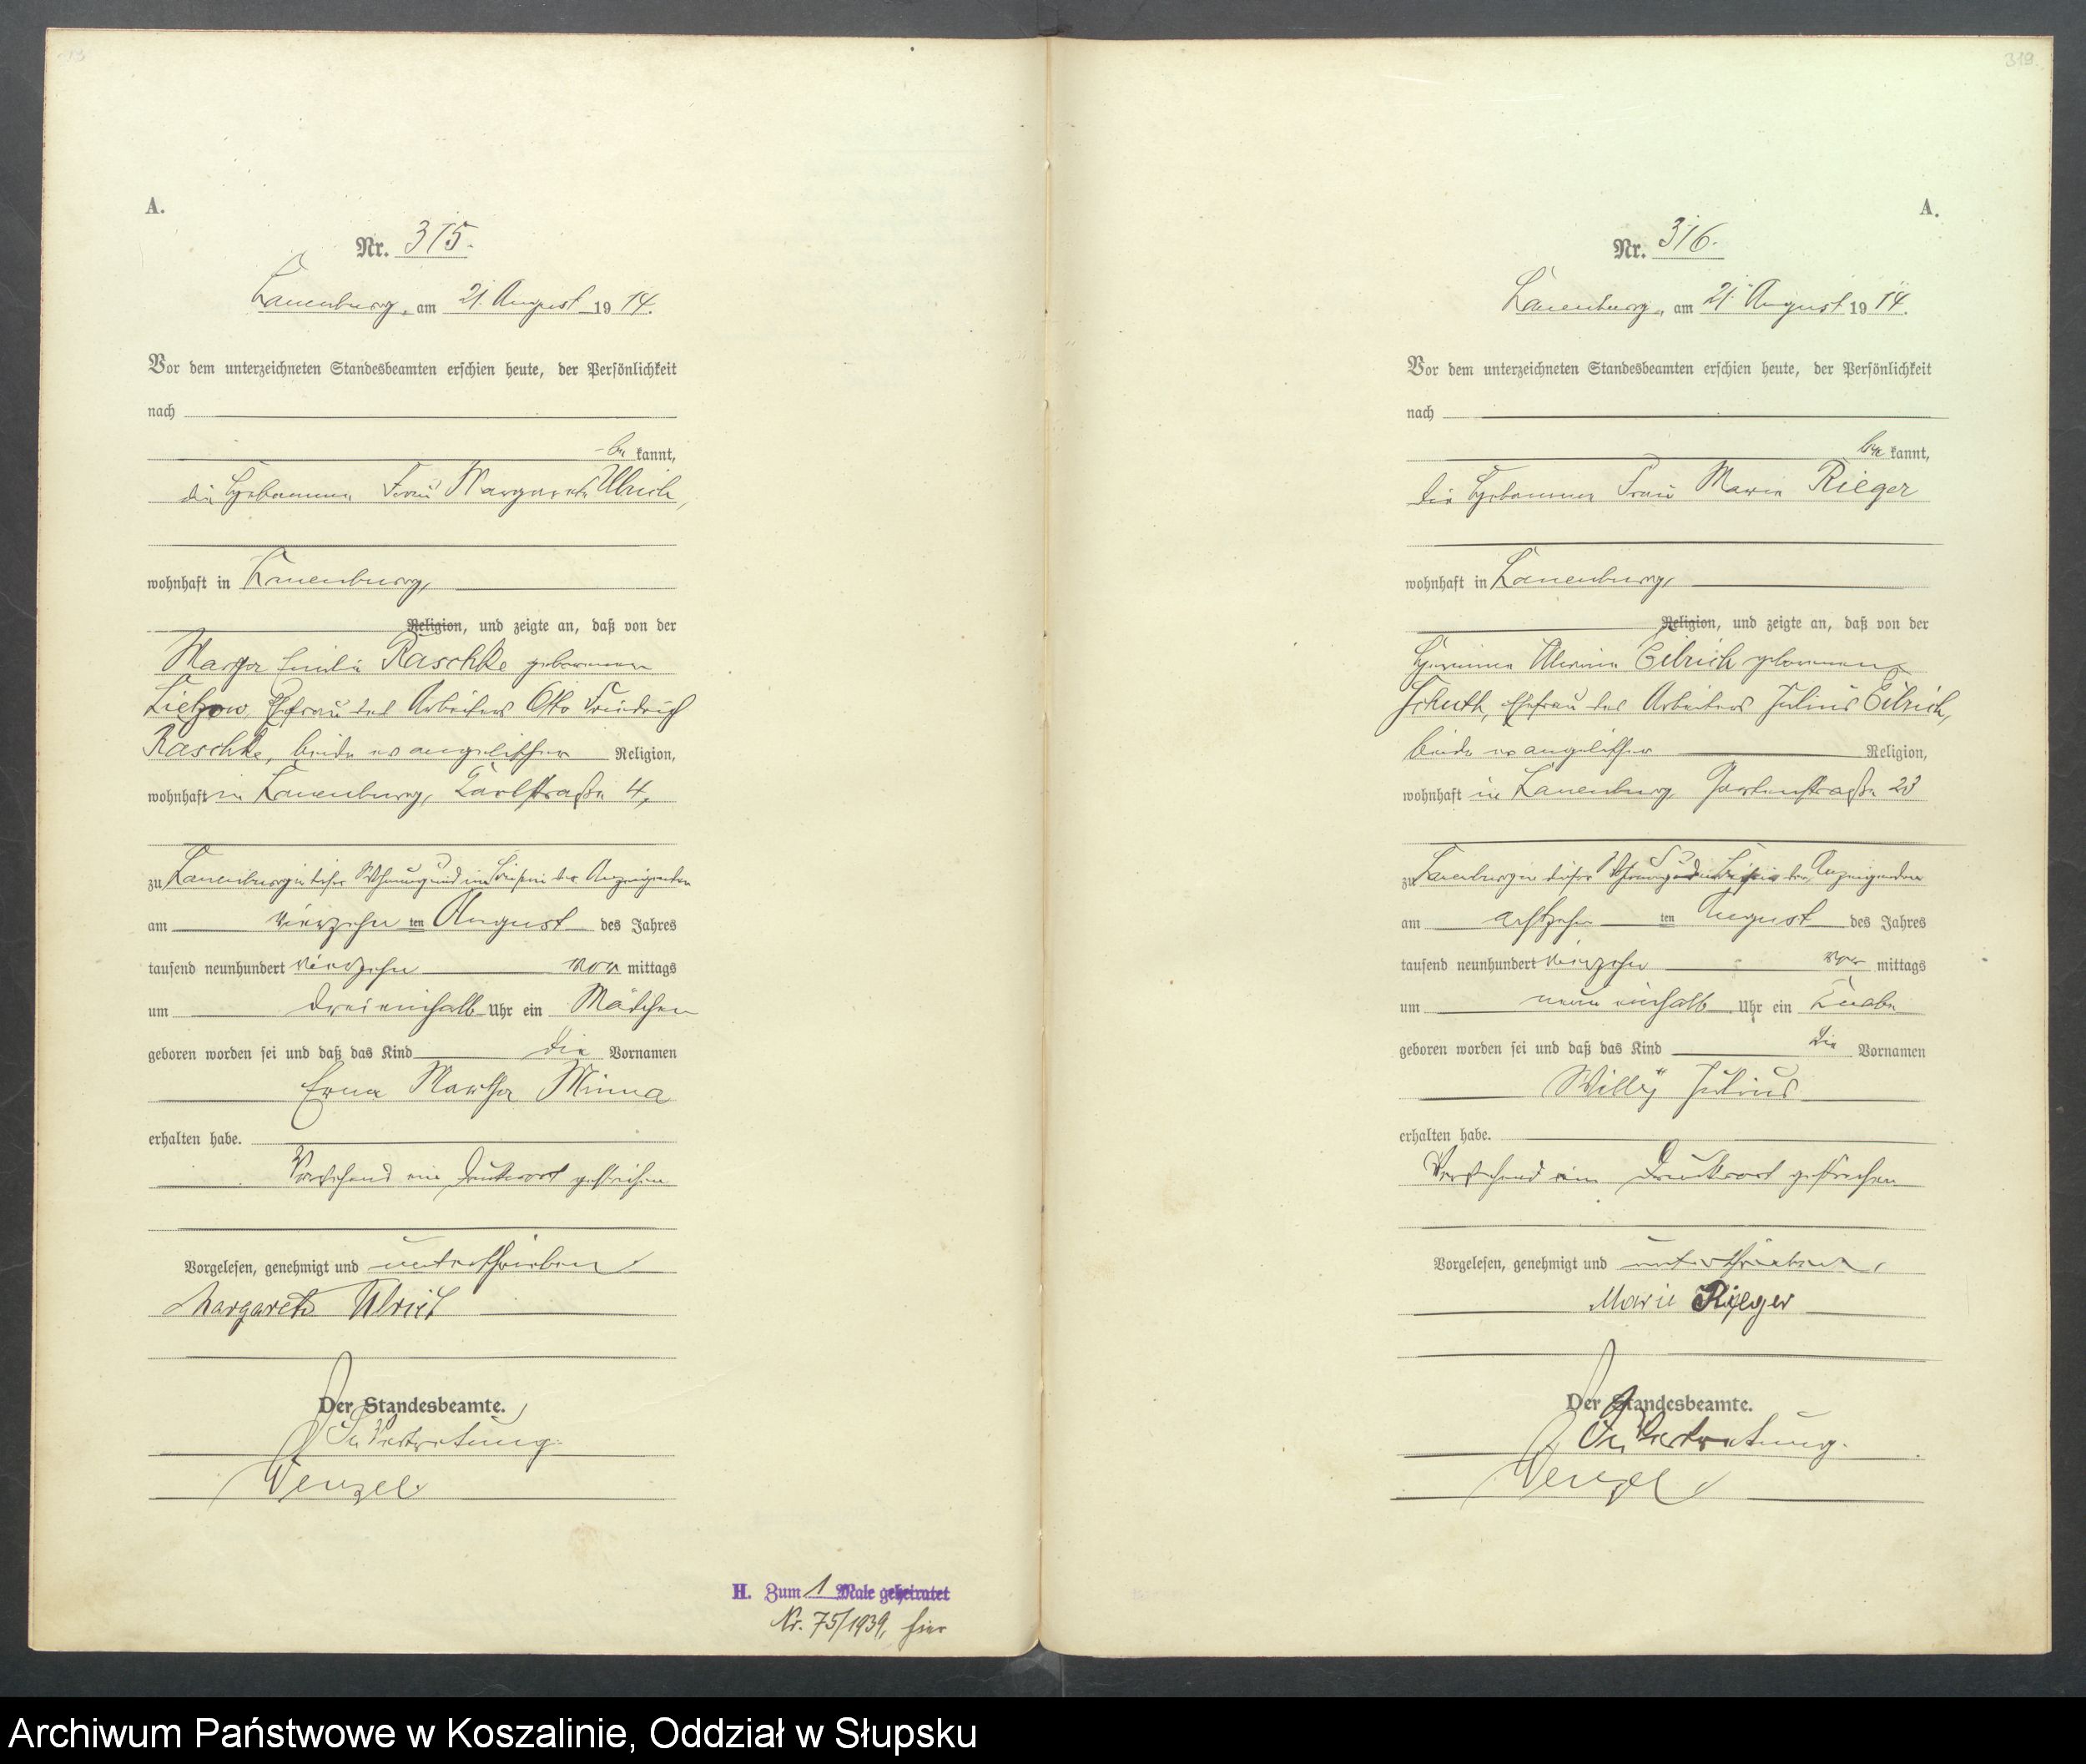 A.
Nr. 315.
Lauenburg, am 21. August 1914.
Vor dem unterzeichneten Standesbeamten erschien heute, der Persönlichkeit
nach
be kannt,
die Hebamme Frau Margarete Ulrich,
wohnhaft in Lauenburg,
Religion, und zeigte an, daß von der
Martha Emilie Raschke geborenen
Lietzow, Ehefrau des Arbeiters Otto Friedrich
Raschke, beide evangelischer Religion,
wohnhaft in Lauenburg, Karlstraße 4,
zu Lauenburg in dieser Wohnung und im Beisein der Anzeigenden
am vierzehn ten August des Jahres
tausend neunhundert vierzehn vor mittags
um dreieinhalb Uhr ein Mädchen
geboren worden sei und daß das Kind die Vornamen
Erna Martha Minna
erhalten habe.
Vorstehend ein Druckwort gestrichen
Vorgelesen, genehmigt und unterschrieben
Margarete Ulrich
Der Standesbeamte.
In Vertretung.
Wenzel.
H. Zum 1 Male geheiratet
Nr. 75/1939, hier
319.
A.
Nr. 316.
Lauenburg, am 21. August 1914.
Vor dem unterzeichneten Standesbeamten erschien heute, der Persönlichkeit
nach
be kannt,
die Hebamme Frau Marie Rieger
wohnhaft in Lauenburg,
Religion, und zeigte an, daß von der
Hermine Alwine geborenen
Schuth, Ehefrau des Arbeiters Julius
beide evangelischer Religion,
wohnhaft in Lauenburg Gartenstraße 23
zu Lauenburg in dieser Wohnung und im Beisein der Anzeigenden
am achtzehn ten August des Jahres
tausend neunhundert vierzehn vor mittags
um neuneinhalb Uhr ein Knabe
geboren worden sei und daß das Kind die Vornamen
Willÿ Julius
erhalten habe.
Vorstehend ein Druckwort gestrichen
Vorgelesen, genehmigt und unterschrieben,
Marie Rieger
Der Standesbeamte.
In Vertretung.
Wenzel
Archiwum Państwowe w Koszalinie, Oddział w Słupsku